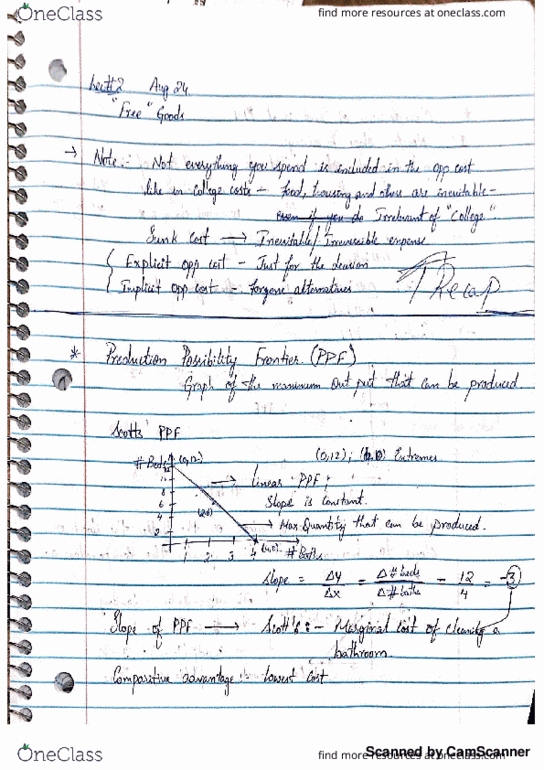 OneClass
find more resources at oneclass.com
Lect#2 Aug 24
"Free" Goods
→ Note:- Not everything you spend is included in the opp cost
like in college costs - food, housing and other are inevitable -
even if you do Irrelevant of "College".
Sunk cost → Inevitable/Irreversible expense
Explicit opp cost - Just for the decision
Implicit opp cost - forgone alternatives
Recap
* Production Possibility Frontier (PPF)
Graph of the maximum output that can be produced.
Scotts' PPF
# Beds (0,12) (0,12); Extremes
→ Linear PPF;
Slope is constant.
→ Max Quantity that can be produced.
1 2 3 4 (4,0) # Baths
Slope = Δy/Δx = Δ# beds/Δ# baths - 12/4 = -3
Slope of PPF → Scott's:- Marginal cost of cleaning a
bathroom.
Comparitive advantage:- lowest cost
OneClass
find more resources at oneclass.com
Scanned by CamScanner